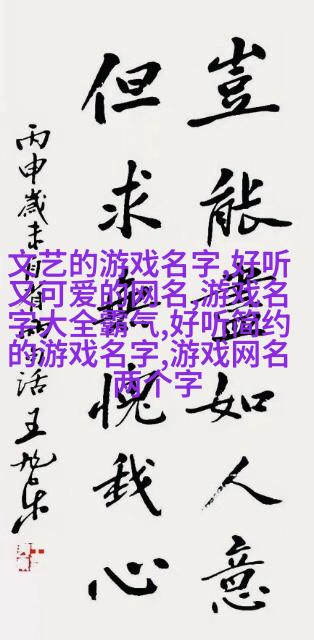 豈能盡如人意
但求無愧我心
丙申歲末自 话 王旭东
文艺的游戏名字,好听
又可爱的网名,游戏名
字大全霸气,好听简约
的游戏名字,游戏网名
两个字